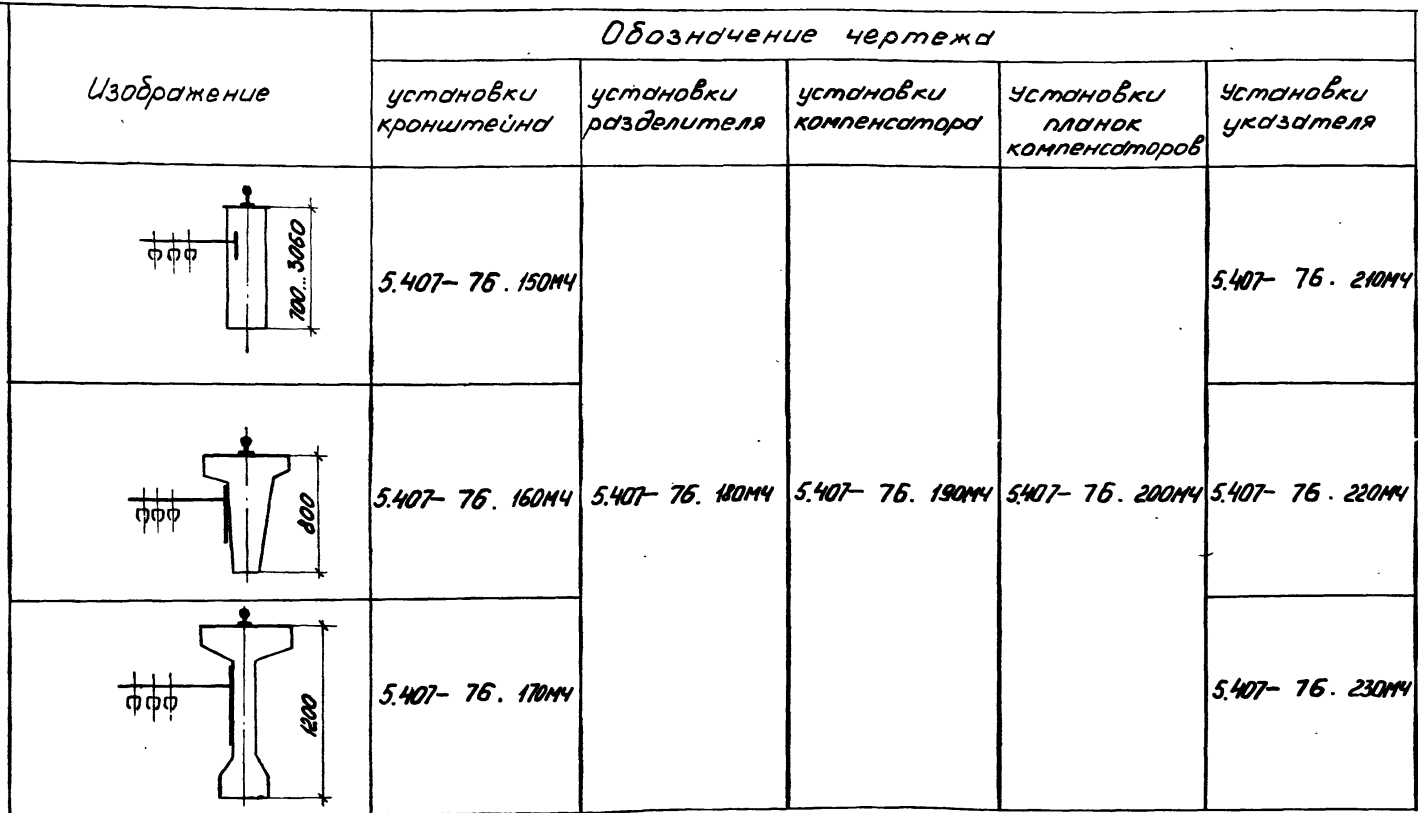 Обозначение чертежа
Изображение
установки кронштейна
установки разделителя
установки компенсатора
установки планок компенсаторов
установки указателя
700...3060
5.407-76.150МЧ
5.407-76.210МЧ
800
5.407-76.160МЧ
5.407-76.180МЧ
5.407-76.190МЧ
5.407-76.200МЧ
5.407-76.220МЧ
1200
5.407-76.170МЧ
5.407-76.230МЧ